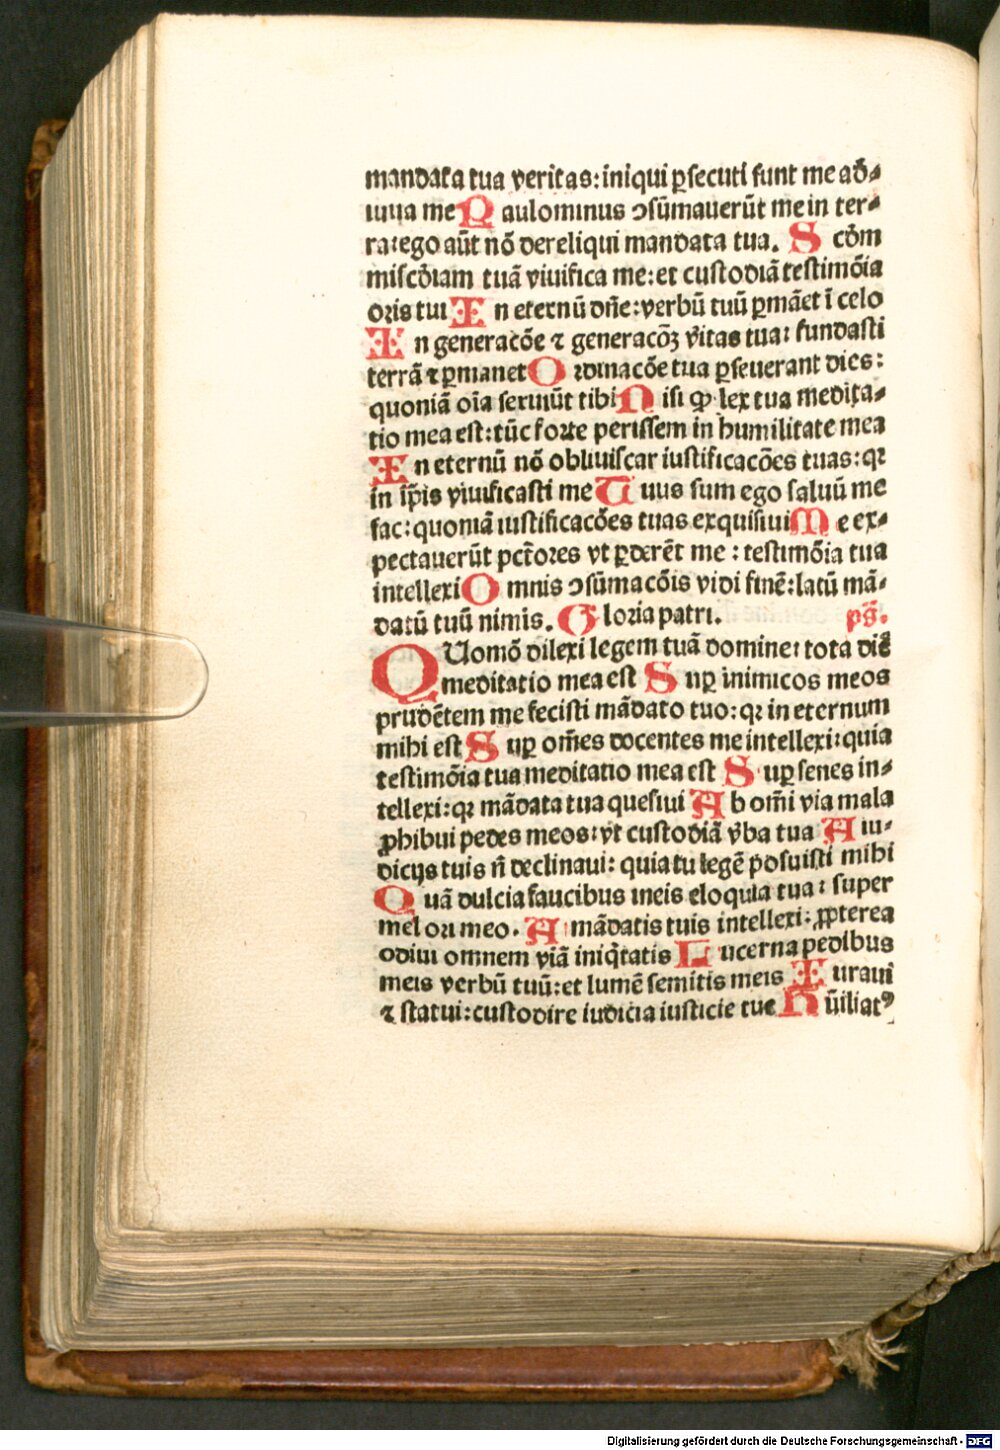 mandata tua veritas: iniqui ꝑsecuti sunt me ad⸗
iuua me P aulominus ↄsūmauerūt me in ter⸗
ra: ego aūt nō dereliqui mandata tua. S cd̄m
misc̄diam tuā viuifica me: et custodiā testimōia
oris tui I n eternū dn̄e: verbū tuū ꝑmāet ī celo
I n generacōe ⁊ generacōꝫ v̄itas tua: fundasti
terrā ⁊ ꝑmanet O rdinacōe tua ꝑseuerant dies:
quoniā oīa seruiūt tibi N isi ꝙ lex tua medita⸗
tio mea est: tūc forte perissem in humilitate mea
I n eternū nō obliuiscar iustificacōes tuas: qꝛ
in ip̄is viuificasti me T uus sum ego saluū me
fac: quoniā iustificacōes tuas exquisiui M e ex⸗
pectauerūt pct̄ores vt ꝑderēt me: testimōia tua
intellexi O mnis ↄsūmacōis vidi finē: latū mā⸗
datū tuū nimis. G loria patri. ps̄.
QUomō dilexi legem tuā domine: tota die
meditatio mea est S uꝑ inimicos meos
prudētem me fecisti mādato tuo: qꝛ in eternum
mihi est S uꝑ om̄es docentes me intellexi: quia
testimōia tua meditatio mea est S uꝑ senes in⸗
tellexi: qꝛ mādata tua quesiui A b om̄i via mala
ꝓhibui pedes meos: vt custodiā v̄ba tua A iu⸗
dicijs tuis n̄ declinaui: quia tu legē posuisti mihi
Q uā dulcia faucibus meis eloquia tua: super
mel ori meo. A mādatis tuis intellexi: ꝓpterea
odiui omnem viā iniq̄tatis L ucerna pedibus
meis verbū tuū: et lumē semitis meis I uraui
⁊ statui: custodire iudicia iusticie tue H ūiliatꝰ
Digitalisierung gefördert durch die Deutsche Forschungsgemeinschaft - DFG